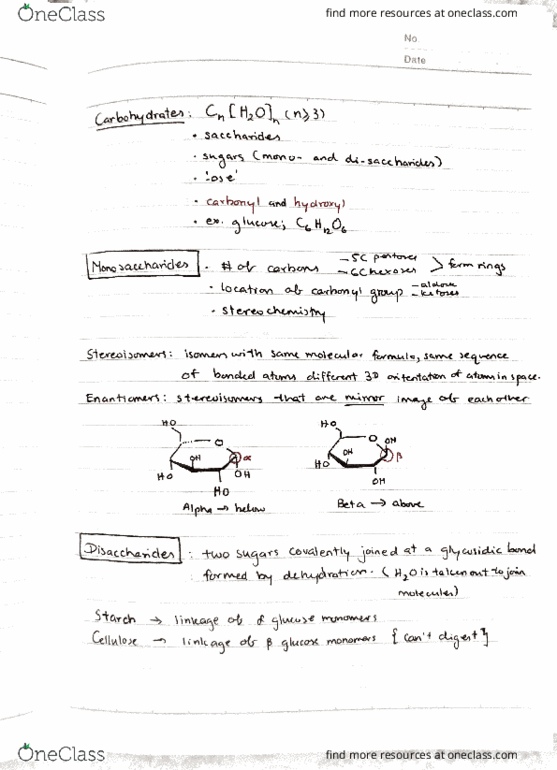 OneClass
find more resources at oneclass.com
No.
Date
Carbohydrates: Cn[H2O]n (n≥3)
• saccharides
• sugars (mono- and di-saccharides)
• 'ose'
• carbonyl and hydroxyl
• ex. glucose; C6H12O6
Monosaccharides • # of carbons — 5C pentoses — 6C hexoses > form rings
• location of carbonyl group — aldose — ketoses
• stereochemistry
Stereoisomers: isomers with same molecular formula, same sequence
of bonded atoms different 3D orientation of atoms in space.
Enantiomers: stereoisomers that are mirror image of each other
HO O OH α HO OH HO
HO O OH OH β HO OH
Alpha → below
Beta → above
Disaccharides : two sugars covalently joined at a glycosidic bond
: formed by dehydration. (H2O is taken out to join
molecules)
Starch → linkage of α glucose monomers
Cellulose → linkage of β glucose monomers {can't digest}
OneClass
find more resources at oneclass.com